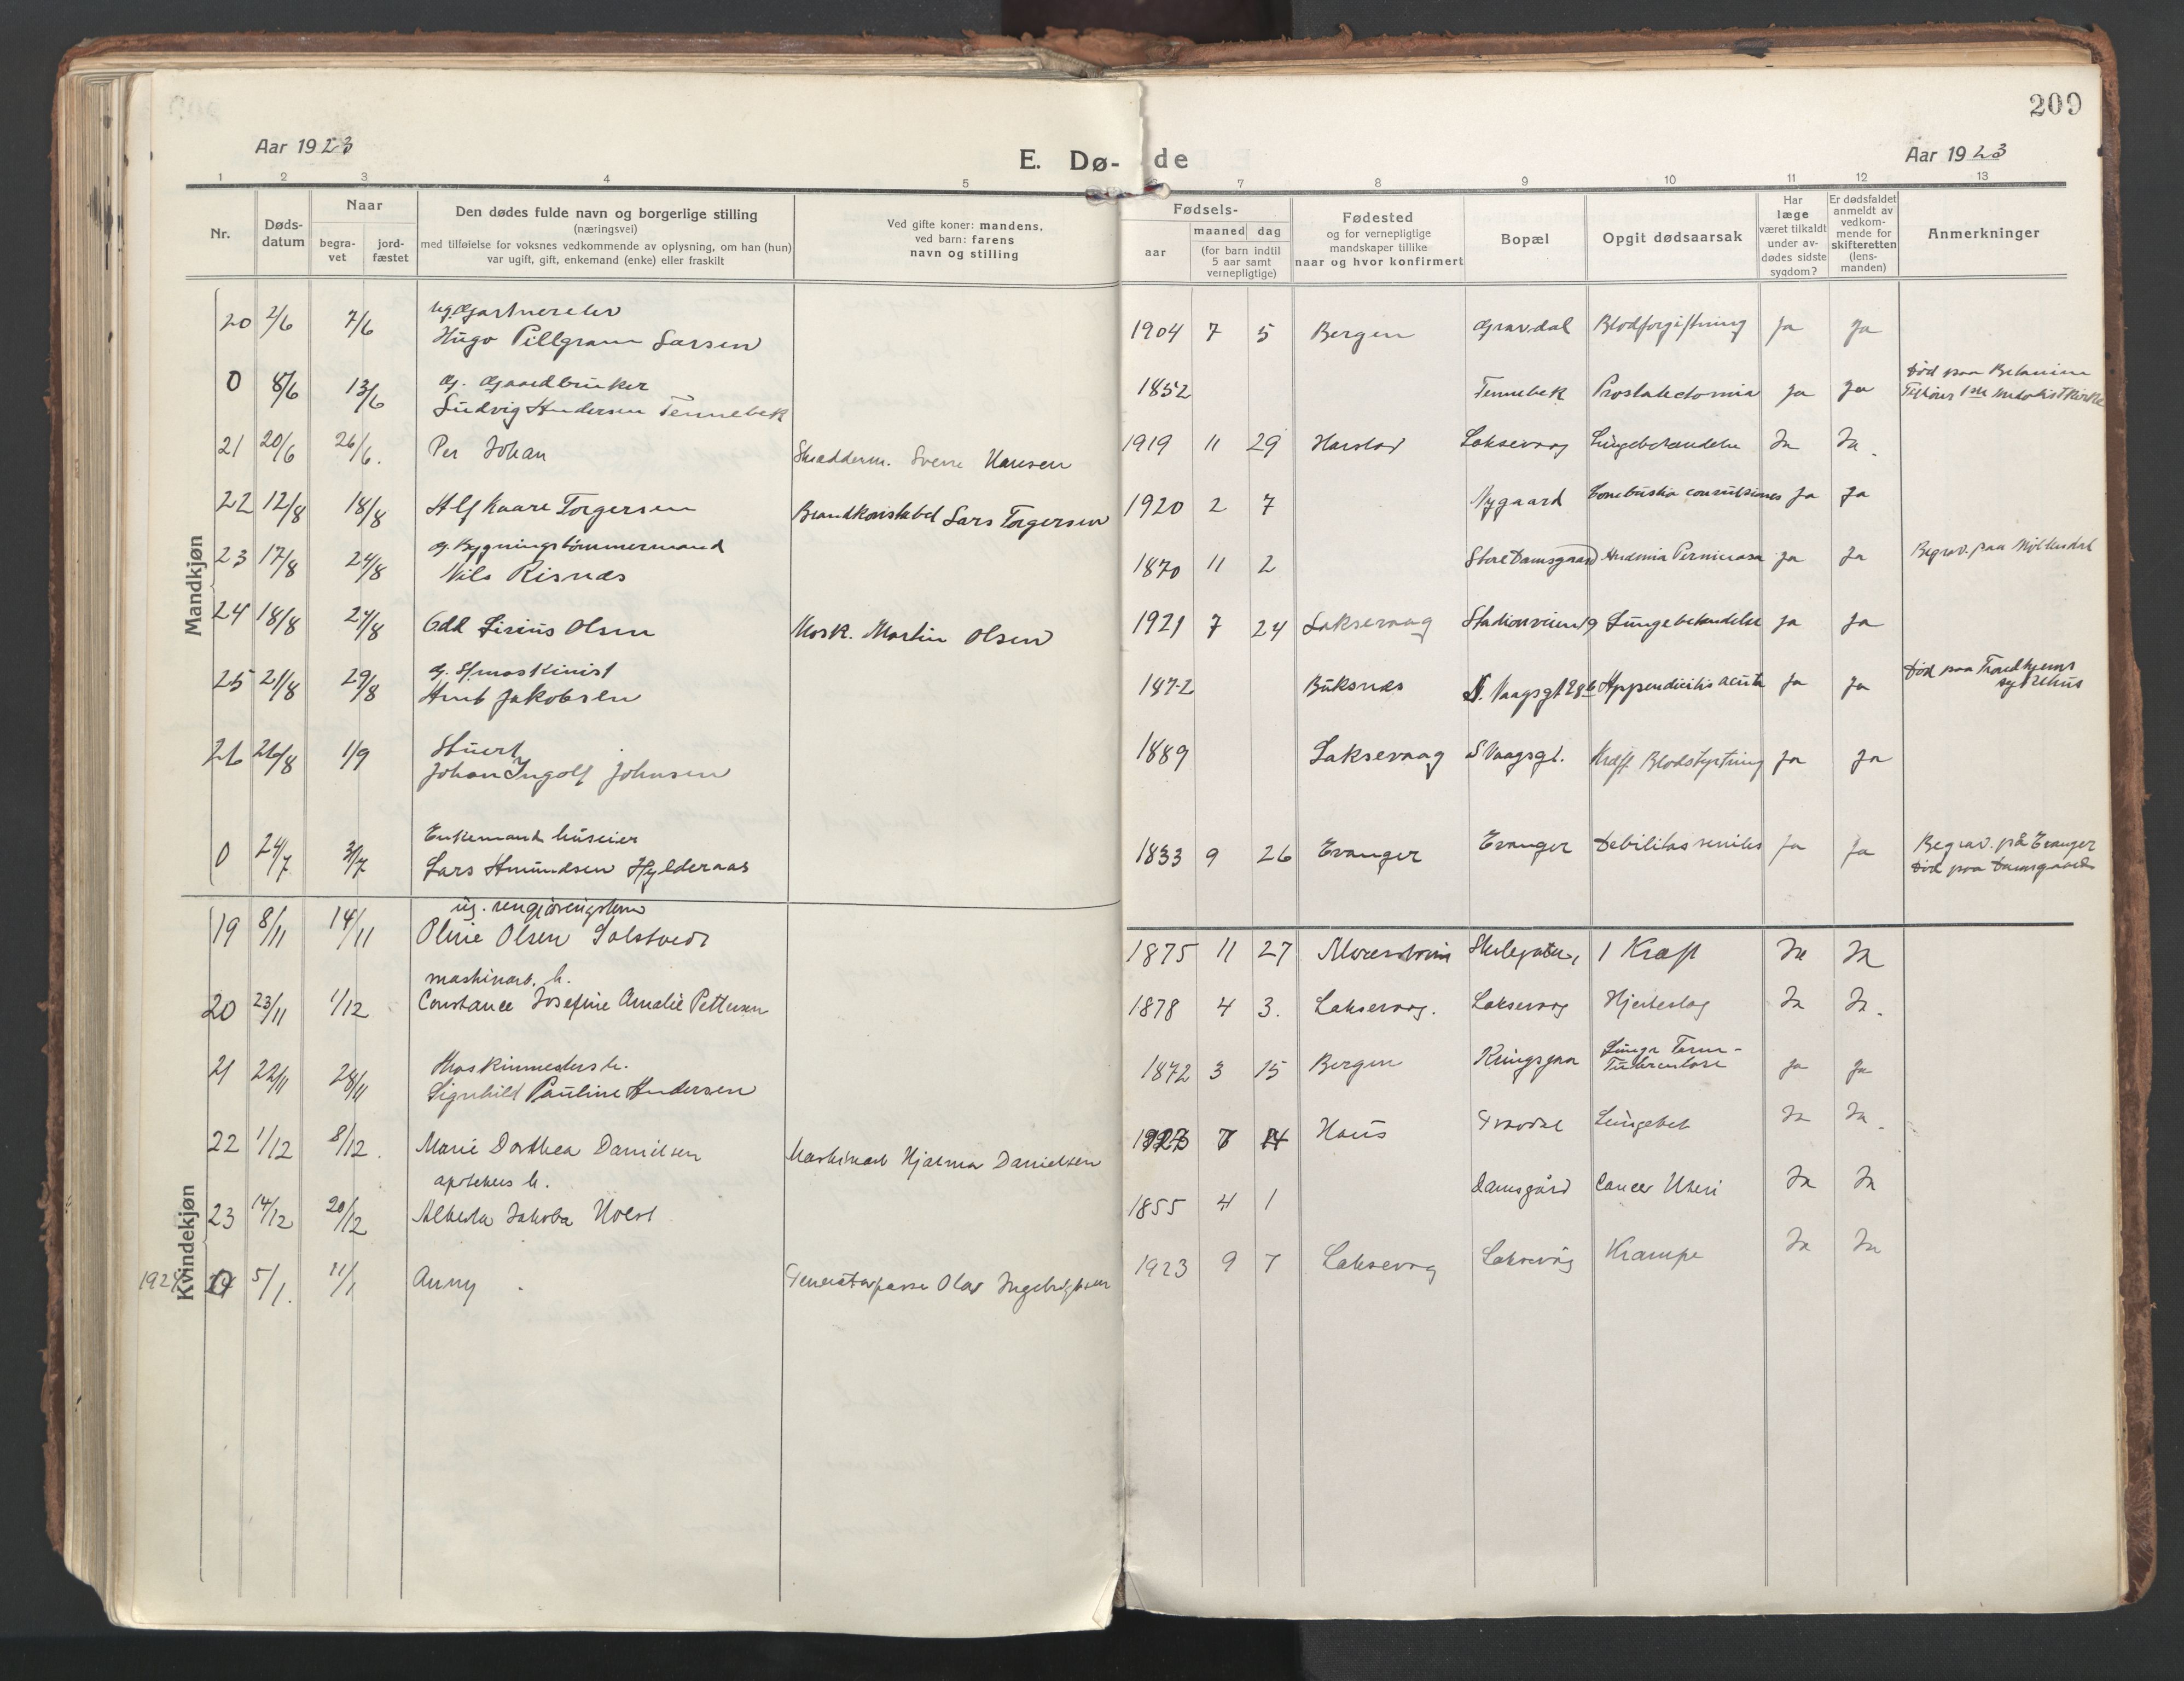 209
Aar 1923
E. Dø-
de
Aar 1923
1 2 3 4 5 7 8 9 10 11 12 13
Nr.
Døds-
datum
Naar
begra-
vet
jord-
fæstet
Den dødes fulde navn og borgerlige stilling
(næringsvei)
med tilføielse for voksnes vedkommende av oplysning, om han (hun)
var ugift, gift, enkemand (enke) eller fraskilt
Ved gifte koner: mandens,
ved barn: farens
navn og stilling
Fødsels-
aar
maaned dag
(for barn indtil
5 aar samt
vernepligtige)
Fødested
og for vernepligtige
mandskaper tillike
naar og hvor konfirmert
Bopæl
Opgit dødsaarsak
Har
læge
været tilkaldt
under av-
dødes sidste
sygdom?
Er dødsfaldet
anmeldt av
vedkom-
mende for
skifteretten
(lens-
manden)
Anmerkninger
Mandkjøn
ug. Gartnerelev
20 2/6 7/6 Hugo Pillgram Larsen 1904 7 5 Bergen Gravdal Blodforgiftning Ja Ja
g. Gaardbruker
0 8/6 13/6 Ludvig Andersen Tennebek 1852 Tennebek Prostatectomia Ja Ja
Død paa Betanien
Tilhører 1ste Metodistkirke
21 20/6 26/6. Per Johan Skrædderm. Sverre Hansen 1919 11 29 Harstad Laksevaag Lungebetændelse Ja Ja.
22 12/8 18/8 Alf Kaare Torgersen Brandkonstabel Lars Torgersen 1920 2 7 Nygaard Ja Ja
g. Bygningstømmermand
23 17/8 24/8 Nils Risnæs 1870 11 2 Store Damsgaard Anemia Perniciosa Ja Ja Begrav. paa Møllendal
24 18/8 24/8 Odd Sirius Olsen Mask. Martin Olsen 1921 7 24 Laksevaag Stadionveien 19 Lungebetændelse Ja Ja
g. Maskinist
25 21/8 29/8 Anub Jakobsen 1872 Buksnæs N. Vaagsgt 28b Appendicitis acuta Ja Ja
Død paa Trondhjems
sykehus
Stuert
26 26/8 1/9 Johan Ingolf Johnsen 1889 Laksevaag S Vaagsgt. Kræft Blodstyrtning Ja Ja
Enkemand huseier
0 24/7 31/7 Lars Amundsen Hylderaas 1833 9 26 Evanger Evanger Debilitas senilis Ja Ja
Begrav. på Evanger
Død paa Damsgaard
Kvindekjøn
ug. rengjøringshj
19 8/11 14/11 Oline Olsen Solstvedt 1875 11 27 Skulegaten 1 Kræft Ja Ja
maskinarb. h.
20 23/11 1/12 Constance Josefine Amalie Pettersen 1878 4 3. Laksevaag. Laksevaag Hjerteslag Ja Ja.
Maskinmesters h.
21 22/11 28/11 Signhild Pauline Andersen 1872 3 15 Bergen Kringsjaa Lunge Tarm-
Tuberculose Ja Ja
22 1/12 8/12. Marie Dorthea Danielsen Maskinarb Hjalmar Danielsen 1923 7 14 Haus Gravdal Lungebet Ja Ja.
apotekers h.
23 14/12 20/12 Alberta Jakoba Holst 1855 4 1 Damsgård Cancer Uteri Ja Ja
1924 0 5/1. 11/1 Anny Generatorpasser Olaf Ingebrigtsen 1923 9 7 Laksevåg Laksevåg Krampe Ja Ja